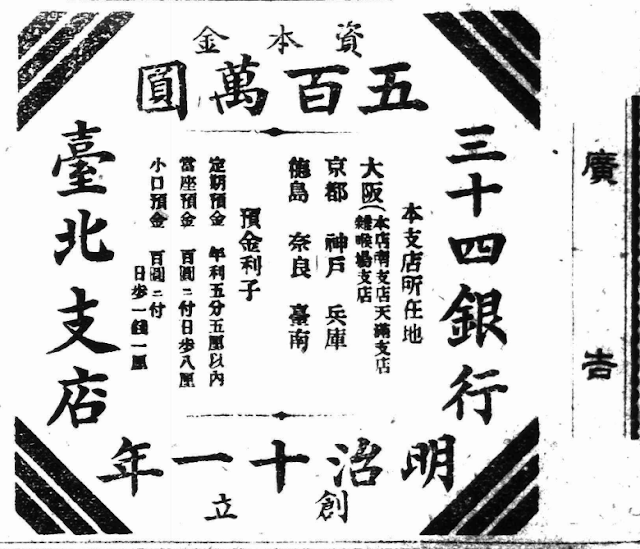 廣告
資本金
五百萬圓
三十四銀行
本支店所在地
大阪(本店南支店天滿支店
雜喉場支店
京都 神戸 兵庫
德島 奈良 臺南
預金利子
定期預金 年利五分五厘以內
當座預金 百圓ニ付日步八厘
小口預金 百圓ニ付
日步一錢一厘
臺北支店
明治十一年
創立